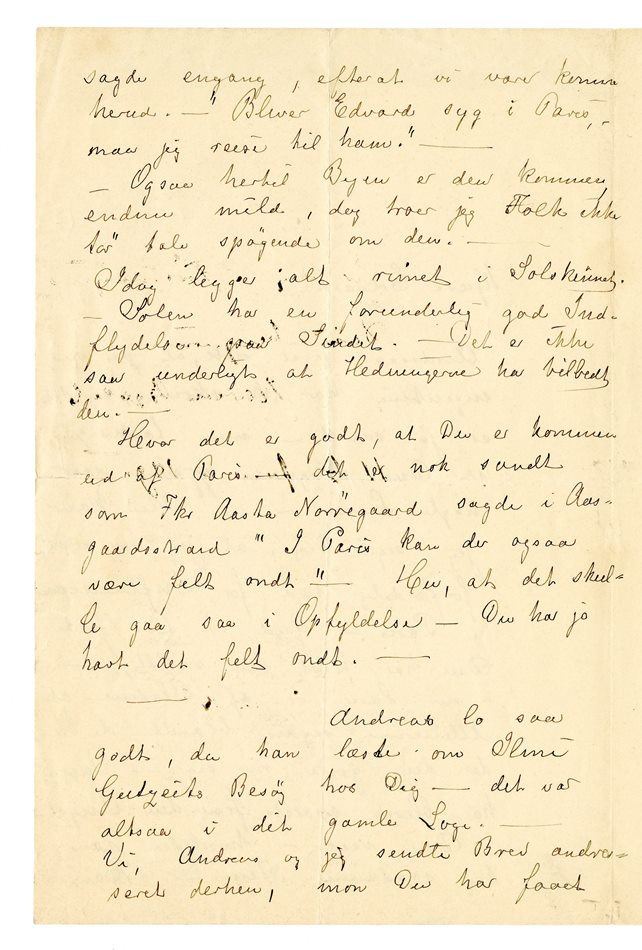 sagde engang, efterat vi vare komne
herud. — "Bliver Edvard syg i Paris, -
maa jeg reise til ham." —
— Ogsaa hertil Byen er den kommen,
endnu mild, dog troer jeg Folk ikke
tør tale spøgende om den. —
Idag ligger alt rimet i Solskinnet.
— Solen har en forunderlig god Ind-
flydelse paa Sindet. — Det er ikke
saa underligt at Hedningerne har tilbedt
den. —
Hvor det er godt, at Du er kommen
ud af Paris — det er nok sandt
som Fkr Aasta Nörregaard sagde i Aas-
gaardsstrand "I Paris kan der ogsaa
være felt ondt" — Hu, at det skul=
le gaa saa i Opfyldelse — Du har jo
havt det felt ondt. —
—
Andreas lo saa
godt, da han læste om
Gutzeits Besøg hos Dig — det var
altsaa i dit gamle Logi. —
Vi, Andreas og jeg sendte Brev andres-
seret derhen, mon Du har faaet